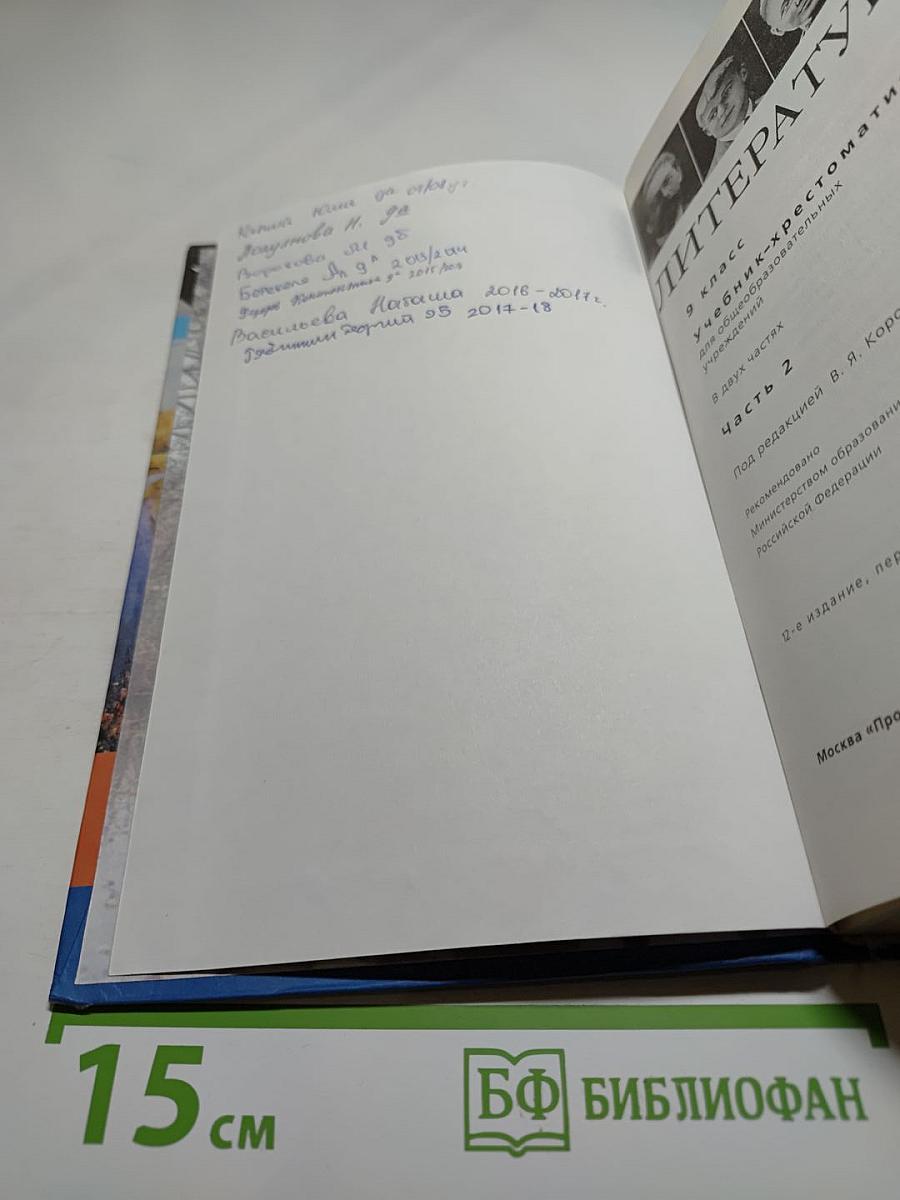 9а
Полуянова Н. 9а
Ворокова 9б
9а 2013/2014
Константин 9а 2015
Васильева Наташа 2016-2017г.
Георгий 9Б 2017-18
ЛИТЕРАТУ
9 класс
Учебник-хрестомати
для общеобразовательных
учреждений
В двух частях
Часть 2
Под редакцией В. Я. Коро
Рекомендовано
Министерством образовани
Российской Федерации
12-е издание, пер
Москва «Про
15 см
БФ БИБЛИОФАН